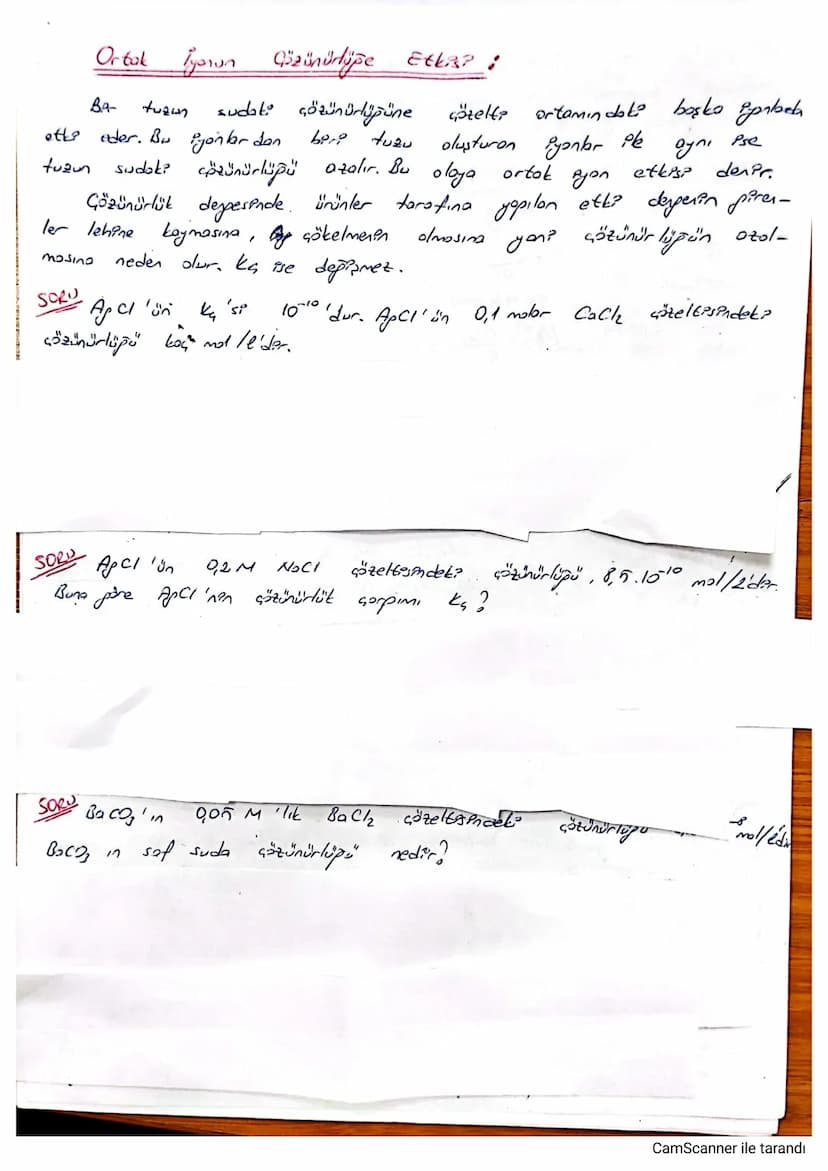 Ortak İyonun Çözünürlüğe Etkisi :
Bir tuzun sudaki çözünürlüğüne çözelti ortamındaki başka iyonlarda
etki eder. Bu iyonlardan biri tuzu oluşturan iyonlar ile aynı ise
tuzun sudaki çözünürlüğü azalır. Bu olaya ortak iyon etkisi denir.
Çözünürlük dengesinde ürünler tarafına yapılan etki dengenin giren-
ler lehine kaymasına, çökelmenin olmasına yani çözünürlüğün azal-
masına neden olur. Kç ise değişmez.
SORU AgCl 'ün Kç 'si 10⁻¹⁰ 'dur. AgCl 'ün 0,1 molar CaCl₂ çözeltisindeki
çözünürlüğü kaç mol/l'dir.
SORU AgCl 'ün 0,2 M NaCl çözeltisindeki çözünürlüğü, 8,5.10⁻¹⁰ mol/l'dir.
Buna göre AgCl 'nin çözünürlük çarpımı Kç ?
SORU BaCO₃ 'ın 0,05 M 'lık BaCl₂ çözeltisindeki çözünürlüğü ⁻⁸ mol/l'dir
BaCO₃ ın saf suda çözünürlüğü nedir?
CamScanner ile tarandı